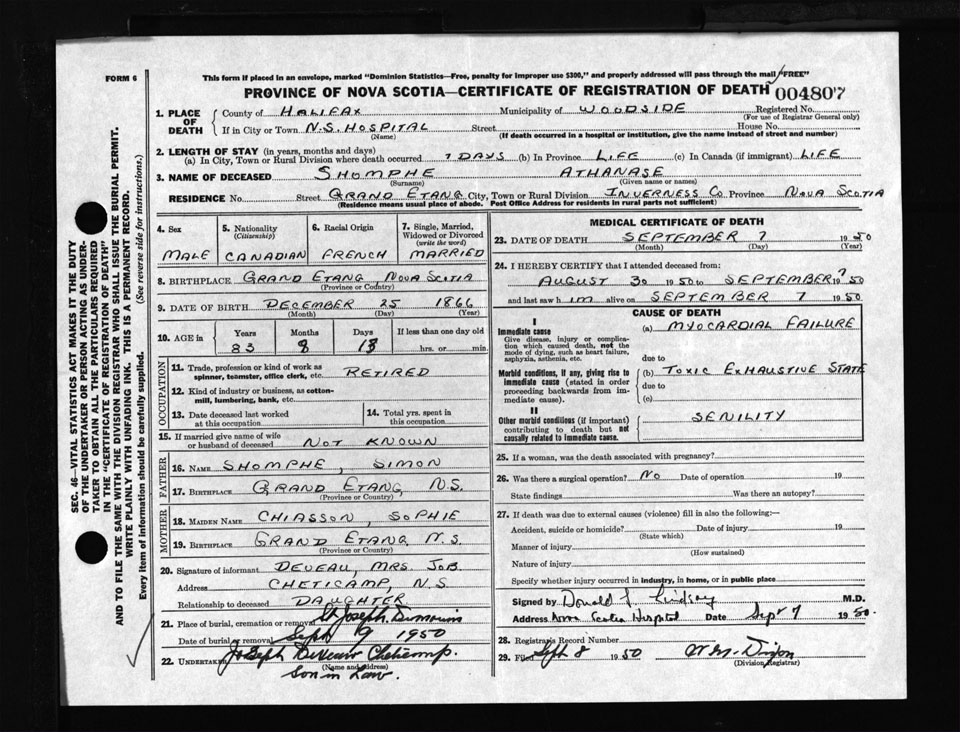 FORM 6
This form if placed in an envelope, marked "Dominion Statistics—Free, penalty for improper use $300," and properly addressed will pass through the mail "FREE"
PROVINCE OF NOVA SCOTIA—CERTIFICATE OF REGISTRATION OF DEATH 004807
1. PLACE OF DEATH { County of HALIFAX Municipality of WOODSIDE Registered No.
(For use of Registrar General only)
If in City or Town N.S. HOSPITAL Street House No.
(Name) (If death occurred in a hospital or institution, give the name instead of street and number)
2. LENGTH OF STAY (in years, months and days)
(a) In City, Town or Rural Division where death occurred 7 DAYS (b) In Province LIFE (c) In Canada (if immigrant) LIFE
3. NAME OF DECEASED SHOMPHE ATHANASE
(Surname) (Given name or names)
RESIDENCE No. Street GRAND ETANG City, Town or Rural Division INVERNESS CO Province NOVA SCOTIA
(Residence means usual place of abode. Post Office Address for residents in rural parts not sufficient)
4. Sex 5. Nationality (Citizenship) 6. Racial Origin 7. Single, Married, Widowed or Divorced (write the word)
MALE CANADIAN FRENCH MARRIED
8. BIRTHPLACE GRAND ETANG NOVA SCOTIA
(Province or Country)
9. DATE OF BIRTH DECEMBER 25 1866
(Month) (Day) (Year)
10. AGE in { Years Months Days If less than one day old
83 8 13 hrs. or min.
OCCUPATION
11. Trade, profession or kind of work as spinner, teamster, office clerk, etc. RETIRED
12. Kind of industry or business, as cotton-mill, lumbering, bank, etc.
13. Date deceased last worked at this occupation 14. Total yrs. spent in this occupation
15. If married give name of wife or husband of deceased NOT KNOWN
FATHER
16. NAME SHOMPHE, SIMON
17. BIRTHPLACE GRAND ETANG, N.S.
(Province or Country)
MOTHER
18. MAIDEN NAME CHIASSON, SOPHIE
19. BIRTHPLACE GRAND ETANG N.S.
(Province or Country)
20. Signature of informant DEVEAU, MRS. JOB.
Address CHETICAMP, N.S.
Relationship to deceased DAUGHTER
21. Place of burial, cremation or removal St Joseph
Date of burial or removal Sept 9 1950
22. Undertaker Joseph Deveau Cheticamp.
(Name and Address)
Son in Law.
MEDICAL CERTIFICATE OF DEATH
23. DATE OF DEATH SEPTEMBER 7 1950
(Month) (Day) (Year)
24. I HEREBY CERTIFY that I attended deceased from:
AUGUST 30 1950 to SEPTEMBER 7 1950
and last saw him alive on SEPTEMBER 7 1950
CAUSE OF DEATH
I
Immediate cause (a) MYOCARDIAL FAILURE
Give disease, injury or complication which caused death, not the mode of dying, such as heart failure, asphyxia, asthenia, etc.
due to
Morbid conditions, if any, giving rise to immediate cause (stated in order proceeding backwards from immediate cause). (b) TOXIC EXHAUSTIVE STATE
due to
(c)
II
Other morbid conditions (if important) contributing to death but not causally related to immediate cause. SENILITY
25. If a woman, was the death associated with pregnancy?
26. Was there a surgical operation? NO Date of operation 19
State findings Was there an autopsy?
27. If death was due to external causes (violence) fill in also the following:—
Accident, suicide or homicide? Date of injury 19
(State which)
Manner of injury
(How sustained)
Nature of injury
Specify whether injury occurred in industry, in home, or in public place
Signed by Donald L Lindsay M.D.
Address Nova Scotia Hospital Date Sept 7 1950.
28. Registrar's Record Number
29. Filed Sept 8 1950 W M Dixon
(Division Registrar)
SEC. 46—VITAL STATISTICS ACT MAKES IT THE DUTY OF THE UNDERTAKER OR PERSON ACTING AS UNDERTAKER TO OBTAIN ALL THE PARTICULARS REQUIRED IN THE "CERTIFICATE OF REGISTRATION OF DEATH" AND TO FILE THE SAME WITH THE DIVISION REGISTRAR WHO SHALL ISSUE THE BURIAL PERMIT.
WRITE PLAINLY WITH UNFADING INK. THIS IS A PERMANENT RECORD.
Every item of information should be carefully supplied. (See reverse side for instructions.)